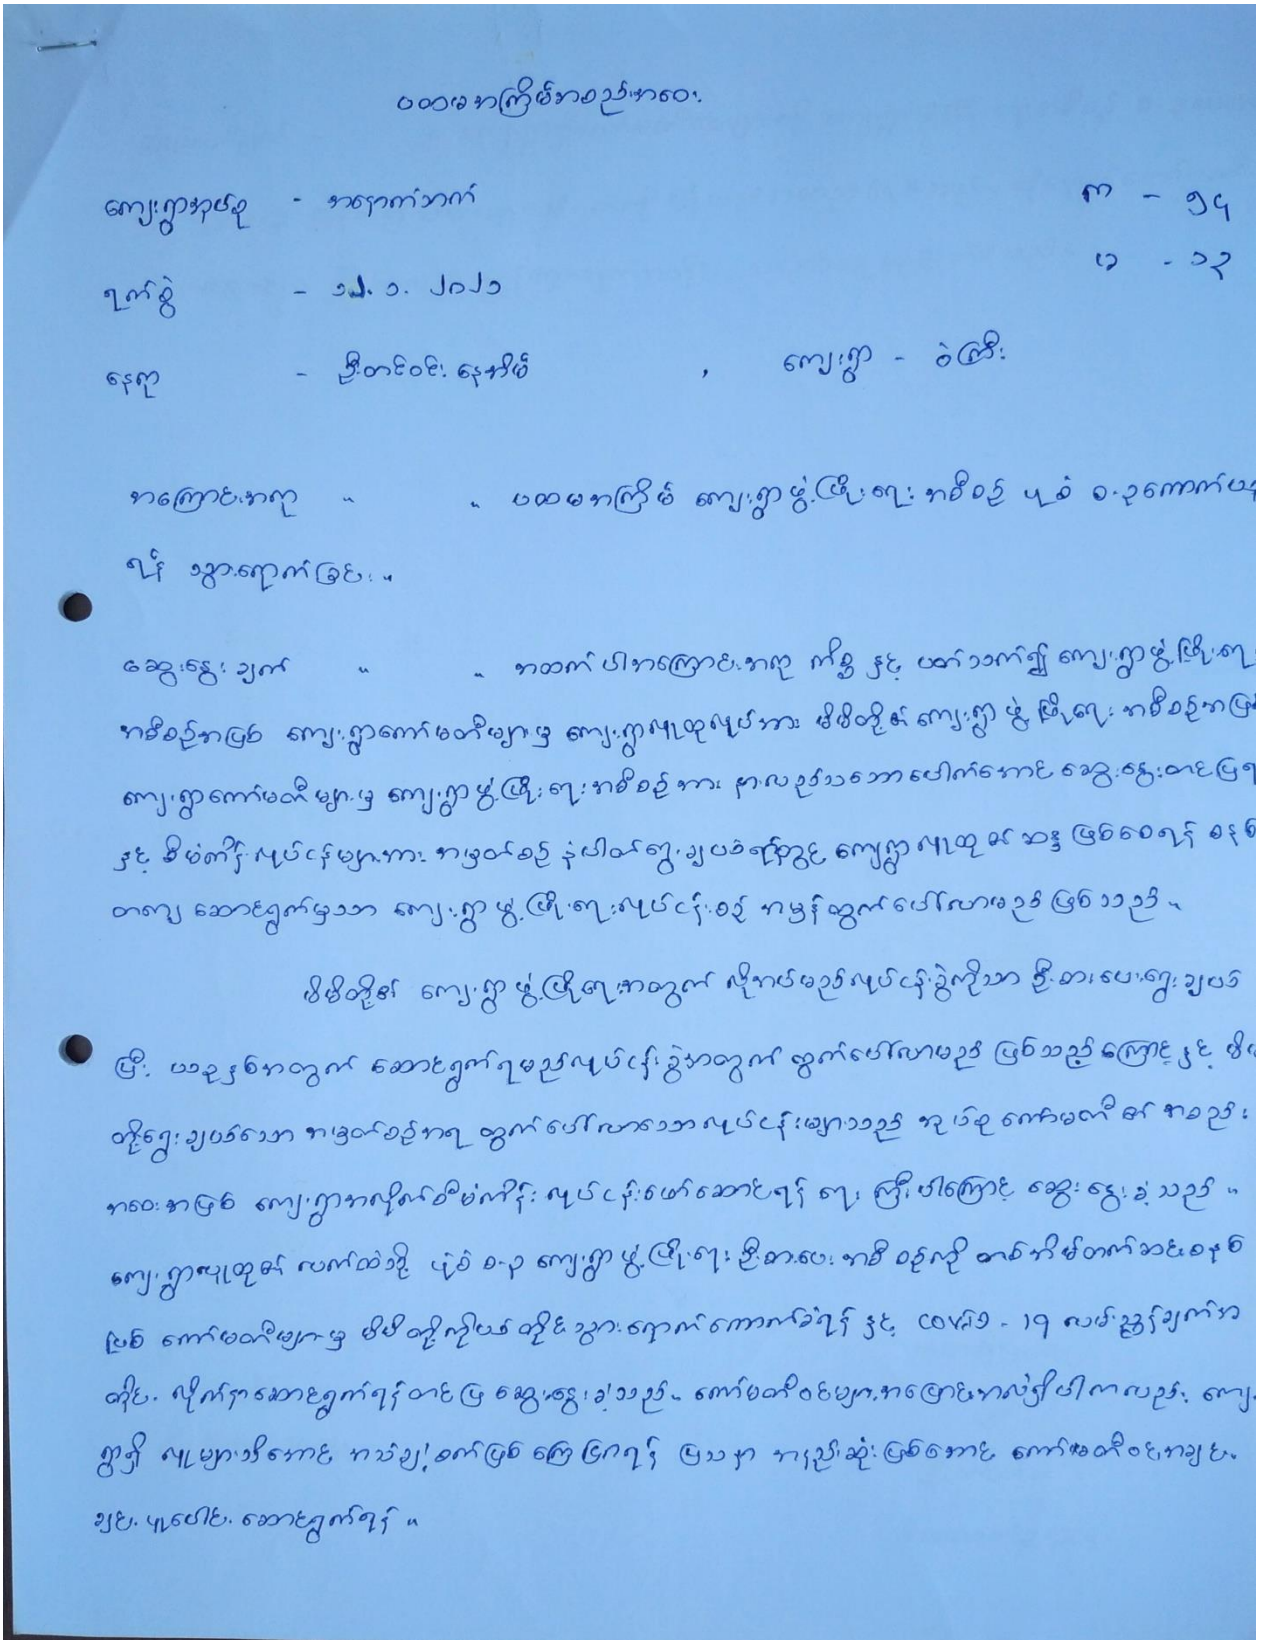 ပထမအကြိမ်အစည်းအဝေး
ကျေးရွာအုပ်စု - အနောက်ဘက် က - ၅၄
ရက်စွဲ - ၁၂.၁.၂၀၂၁ မ - ၁၃
နေရာ - ဦးတင်ဝင်း နေအိမ် , ကျေးရွာ - ဝဲကြီး
အကြောင်းအရာ ။ ။ ပထမအကြိမ် ကျေးရွာဖွံ့ဖြိုးရေး အစီစဉ် ပုံစံ စ-၃ကောက်ယူ
ရန် သွားရောက်ခြင်း ။
ဆွေးနွေးချက် ။ ။ အထက်ပါအကြောင်းအရာ ကိစ္စ နှင့် ပတ်သက်၍ ကျေးရွာဖွံ့ဖြိုးရေး
အစီစဉ်အဖြစ် ကျေးရွာကော်မတီများမှ ကျေးရွာလူထုလုပ်အား မိမိတို့၏ ကျေးရွာ ဖွံ့ဖြိုးရေး အစီစဉ်အဖြစ်
ကျေးရွာကော်မတီများမှ ကျေးရွာဖွံ့ဖြိုးရေးအစီစဉ်အား နားလည်သဘောပေါက်အောင် ဆွေးနွေးတင်ပြရ
နှင့် စီမံကိန်းလုပ်ငန်းများအား အမှတ်စဉ် နံပါတ်ရွေးချယ်ခံရန်တွင် ကျေးရွာလူထု၏ ဆန္ဒ ဖြစ်စေရန် စနစ်
တကျ ဆောင်ရွက်မှသာ ကျေးရွာဖွံ့ဖြိုးရေးလုပ်ငန်းစဉ် အမှန်ထွက်ပေါ်လာမည် ဖြစ်သည် ။
မိမိတို့၏ ကျေးရွာဖွံ့ဖြိုးရေးအတွက် လိုအပ်မည့်လုပ်ငန်းခွဲကိုသာ ဦးစားပေးရွေးချယ်
ပြီး ယခုနှစ်အတွက် ဆောင်ရွက်ရမည့်လုပ်ငန်းခွဲအတွက် ထွက်ပေါ်လာမည် ဖြစ်သည့်ကြောင့်နှင့် မိမိ
တို့ရွေးချယ်သော အမှတ်စဉ်အရ ထွက်ပေါ်လာသောလုပ်ငန်းများသည် အုပ်စုကော်မတီ၏ အစည်း
အဝေးအဖြစ် ကျေးရွာအလိုက်စီမံကိန်း လုပ်ငန်းဖော်ဆောင်ရန် ရေးကြီးပါကြောင့် ဆွေးနွေးခဲ့သည် ။
ကျေးရွာလူထု၏ လက်ထဲသို့ ပုံစံ စ-၃ ကျေးရွာဖွံ့ဖြိုးရေး ဦးစားပေး အစီစဉ်ကို တစ်အိမ်တက်ဆင်းစနစ်
ဖြင့် ကော်မတီများမှ မိမိတို့ကိုယ်တိုင် သွားရောက်ကောက်ခံရန် နှင့် COVID - 19 လမ်းညွှန်ချက်အ
တိုင်း လိုက်နာဆောင်ရွက်ရန်တင်ပြ ဆွေးနွေးခဲ့သည်။ ကော်မတီဝင်များအပြောင်းအလဲရှိပါကလည်း ကျေး
ရွာရှိ လူများသိအောင် အသံချဲ့စက်ဖြင့် ကြေငြာရန် ပြဿနာ အနည်းဆုံးဖြစ်အောင် ကော်မတီဝင်အချင်း
ချင်း ပူးပေါင်း ဆောင်ရွက်ရန် ။